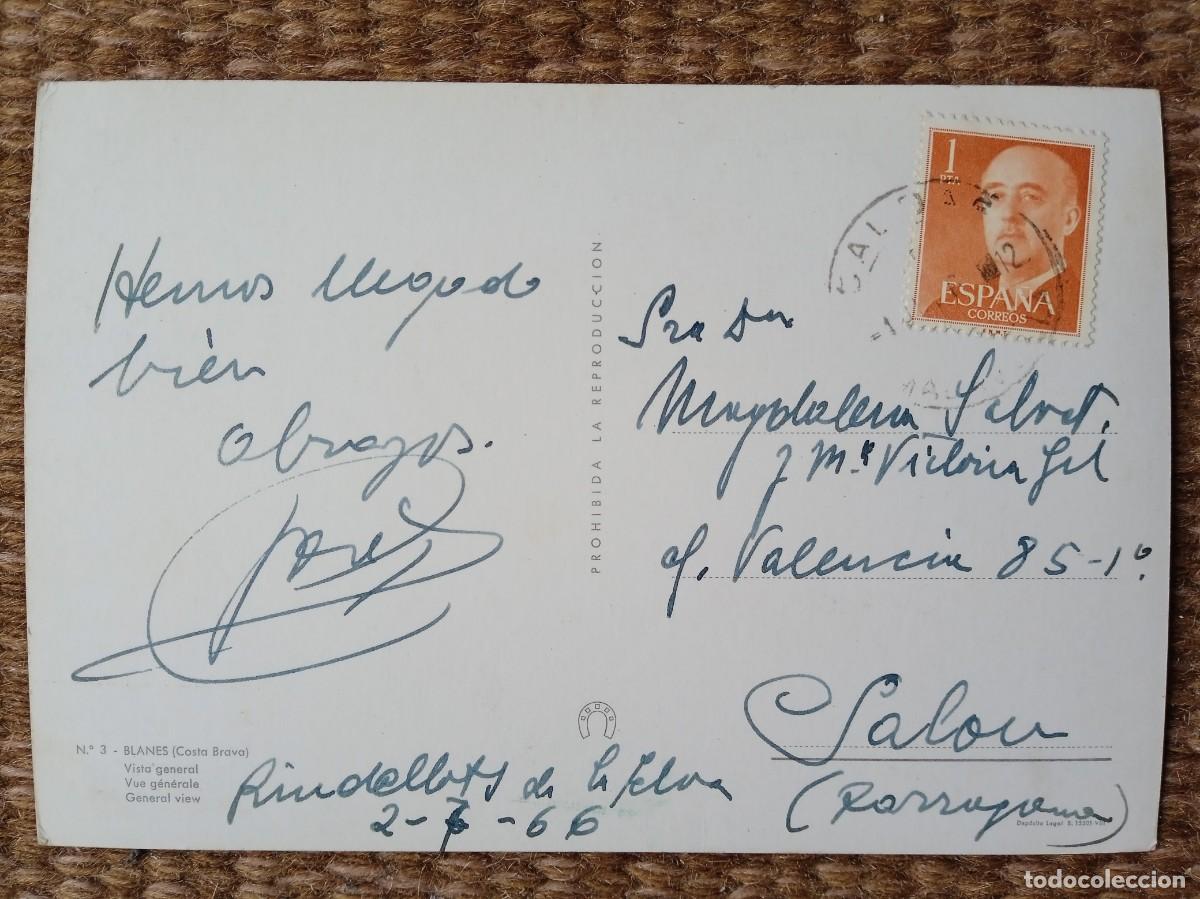 Hemos llegado
bién
abrazos.
N.º 3 - BLANES (Costa Brava)
Vista general
Vue générale
General view
Riudellots de la Selva
2-7-66
PROHIBIDA LA REPRODUCCION
1
PTA
ESPAÑA
CORREOS
Sra Da
Magdalena Salvat.
y Mª Victoria Gil
c/. Valencia 85-1º.
Salou
(Tarragona)
Depósito Legal B.
todocoleccion